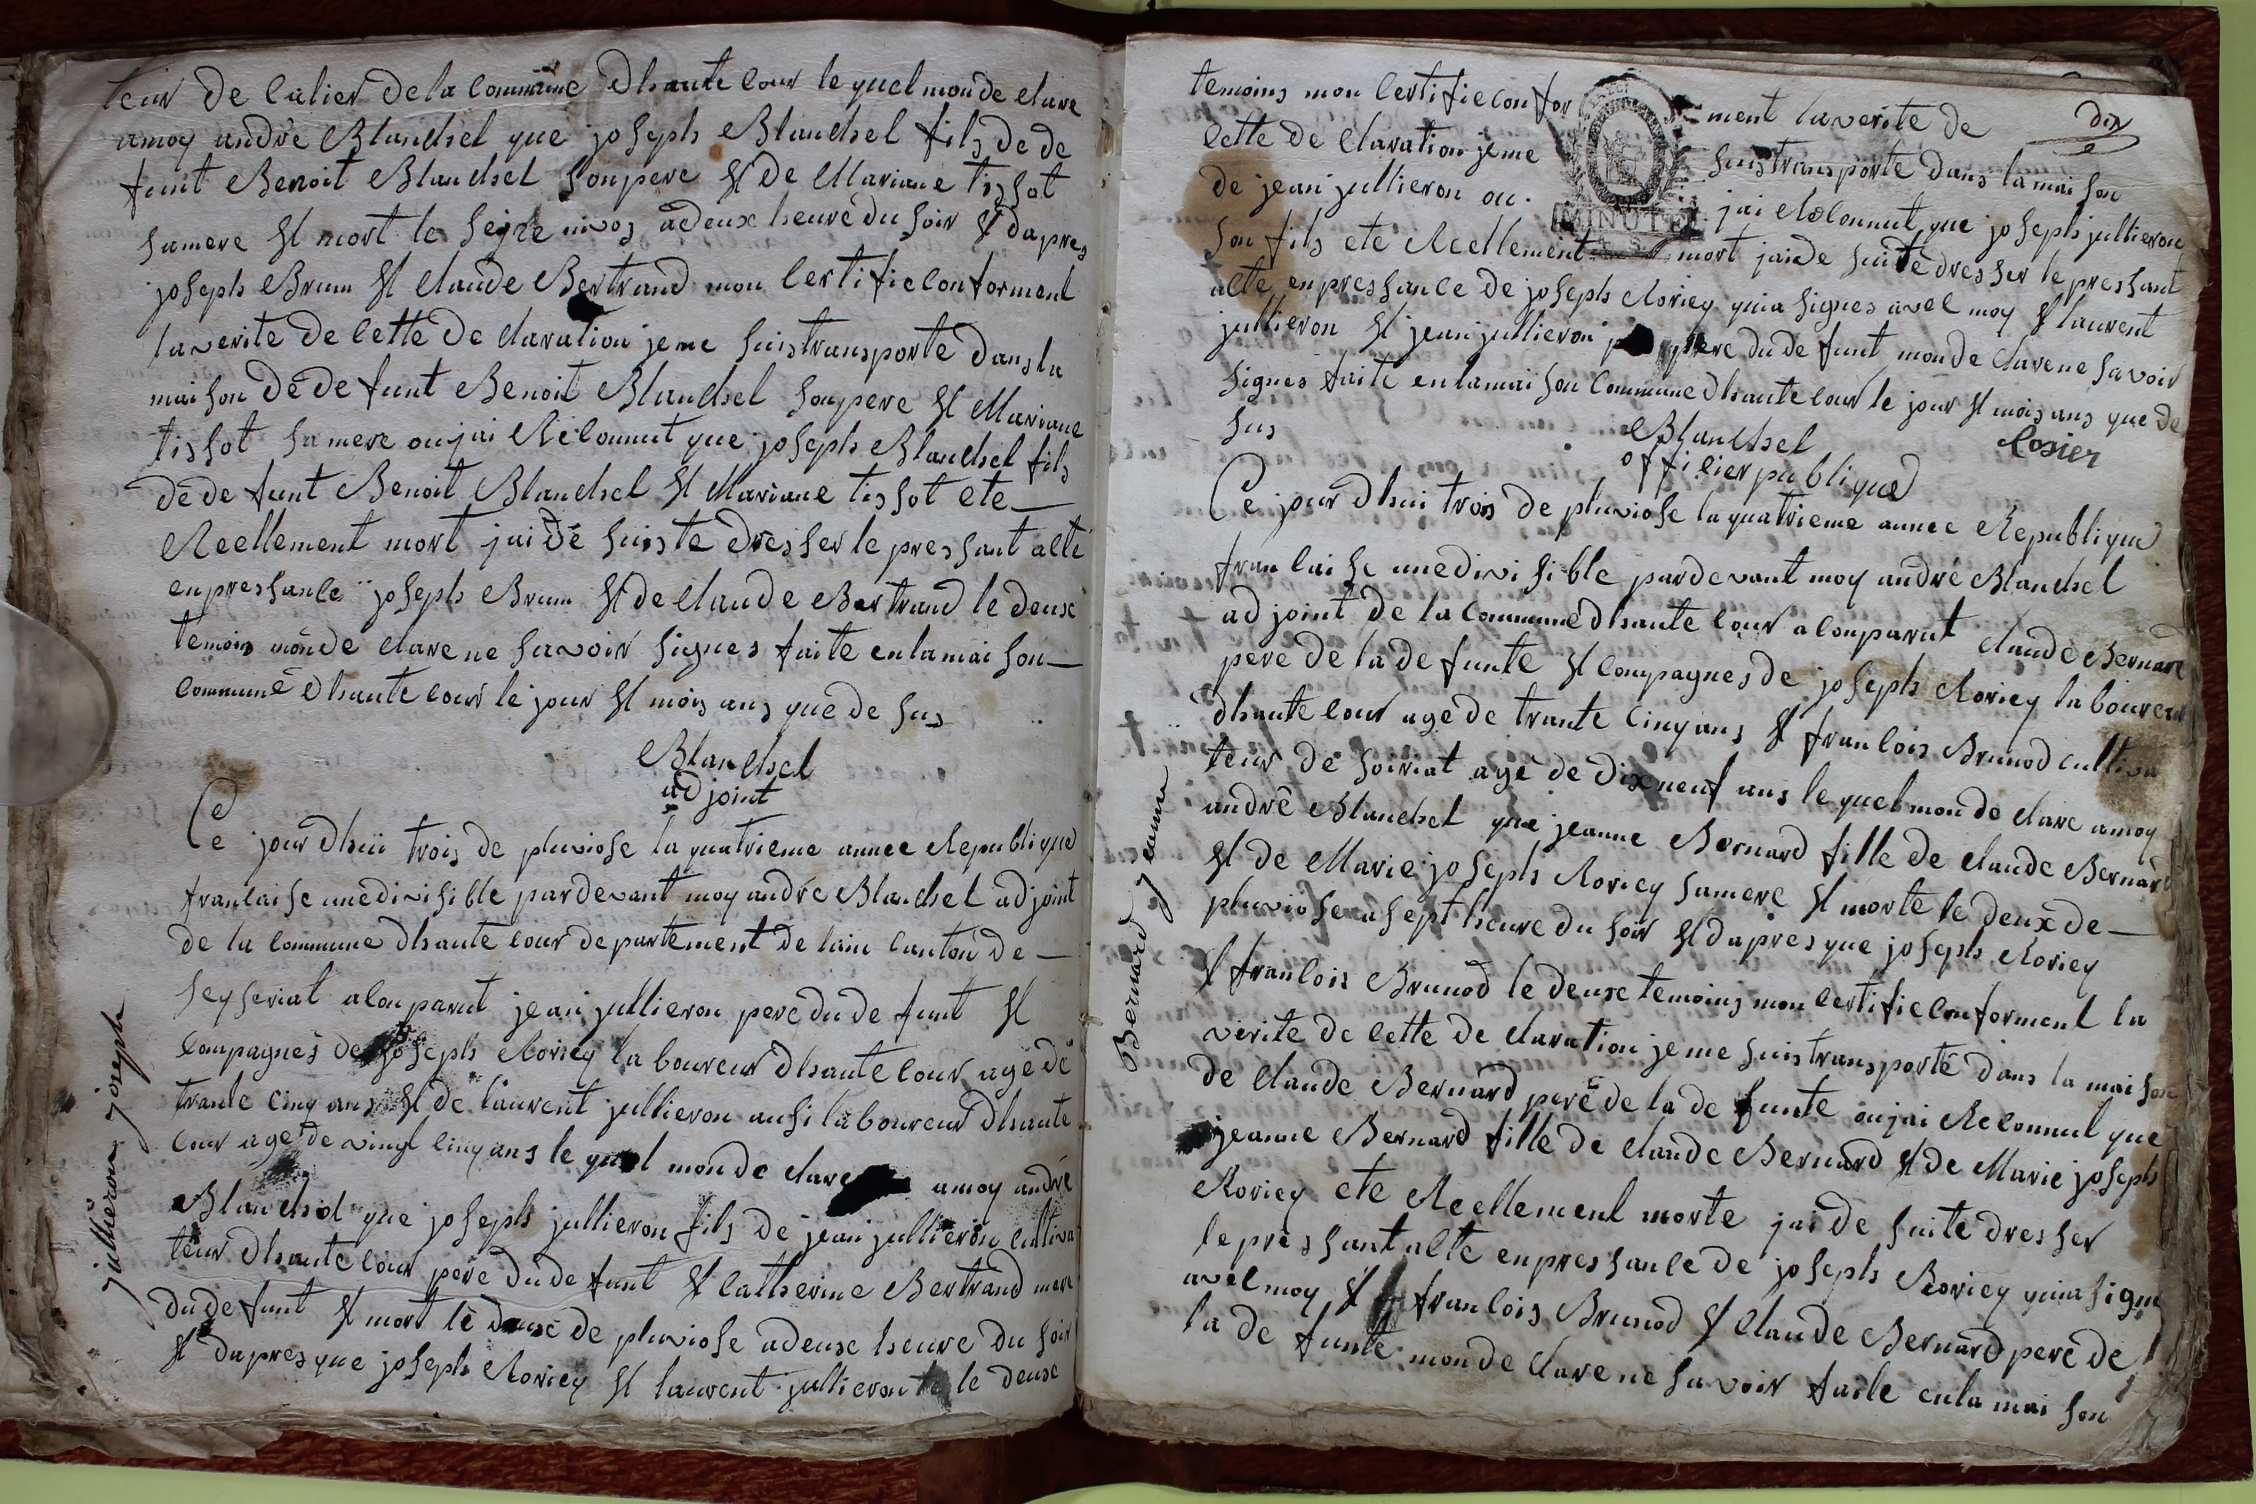 teur de calier de la commune dhautecour le quel mon de clare
amoy andré Blanchet que joseph Blanchet fils de de
funt Benoit Blanchet son pere et de Mariane tissot
sa mere et mort le seize nivos a deux heure du soir et dapres
joseph Brun et claude Bertrand mon certifie conforment
la verite de cette de claration je me suis transporte dans la
maison de de funt Benoit Blanchet son pere et Mariane
tissot sa mere ou jai Reconnut que joseph Blanchet fils
de de funt Benoit Blanchet et Mariane tissot ete
Reellement mort jai de suiste dresser le pressant acte
en pressance joseph Brun et de claude Bertrand le deux
temoin mon de clare ne savoir signes faite en la maison
commune dhautecour le jour et mois ans que de sus
Blanchet
adjoint
Ce jour dhui trois de pluviose la quatrieme annee Republique
francaise une divisible par devant moy andré Blanchet adjoint
de la commune dhautecour departement de lain canton de
seyseriat a comparut jean jullieron pere du de funt et
compagnes de joseph Roriey laboureur dhautecour age de
trante cinq ans et de laurent jullieron ausi laboureur dhaute
cour age de vingt cinq ans le quel mon de clare amoy andré
Blanchet que joseph jullieron fils de jean jullieron cultiva
teur dhautecour pere du de funt et catherine Bertrand mere
du de funt et mort le deux de pluviose a deux heure du soir
et dapres que joseph Roriey et laurent jullieron le deux
jullieron joseph
dix
temoins mon certifie confor ment la verite de
cette de claration je me suis transporte dans la maison
de jean jullieron ou jai Reconnut que joseph jullieron
MINUTE
son fils ete Reellement mort jai de suite dresser le pressant
acte en pressance de joseph Roriey qui a signes avec moy et laurent
jullieron et jean jullieron pere du de funt mon de clare ne savoir
signes faite en la maison commune dhautecour le jour et mois ans que de
sus
Blanchet Rosier
officier publique
Ce jour dhui trois de pluviose la quatrieme annee Republique
francaise une divisible par devant moy andré Blanchet
adjoint de la commune dhautecour a comparut claude Bernard
pere de la de funte et compagnes de joseph Roriey laboureur
dhautecour age de trante cinq ans et francois Brunod cultiva
teur de soiriat age de dix neuf ans le quel mon de clare amoy
andré Blanchet que jeanne Bernard fille de claude Bernard
et de Marie joseph Roriey sa mere et morte le deux de
pluviose a sept heure du soir et dapres que joseph Roriey
et francois Brunod le deux temoins mon certifie conforment la
verite de cette de claration je me suis transporté dans la maison
de claude Bernard pere de la de funte ou jai Reconnut que
jeanne Bernard fille de claude Bernard et de Marie joseph
Roriey ete Reellement morte jai de suite dresser
le pressant acte en pressance de joseph Roriey qui a signe
avec moy et francois Brunod et claude Bernard pere de
la de funte mon de clare ne savoir faite en la maison
Bernard jeanne